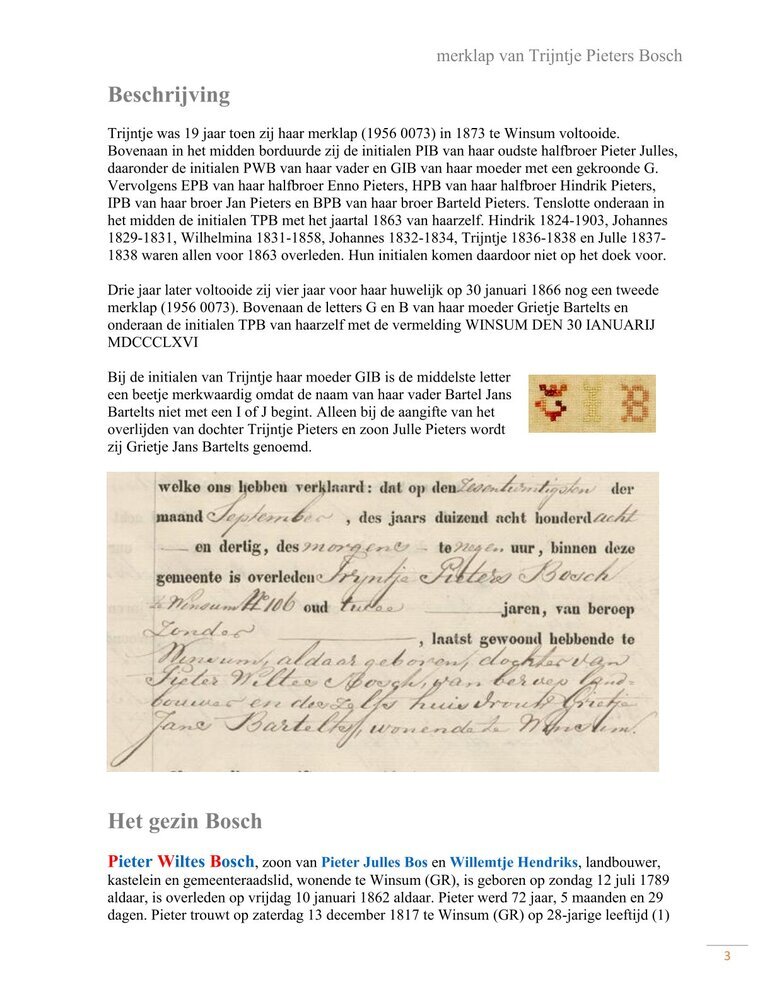 merklap van Trijntje Pieters Bosch
Beschrijving
Trijntje was 19 jaar toen zij haar merklap (1956 0073) in 1873 te Winsum voltooide.
Bovenaan in het midden borduurde zij de initialen PIB van haar oudste halfbroer Pieter Julles,
daaronder de initialen PWB van haar vader en GIB van haar moeder met een gekroonde G.
Vervolgens EPB van haar halfbroer Enno Pieters, HPB van haar halfbroer Hindrik Pieters,
IPB van haar broer Jan Pieters en BPB van haar broer Barteld Pieters. Tenslotte onderaan in
het midden de initialen TPB met het jaartal 1863 van haarzelf. Hindrik 1824-1903, Johannes
1829-1831, Wilhelmina 1831-1858, Johannes 1832-1834, Trijntje 1836-1838 en Julle 1837-
1838 waren allen voor 1863 overleden. Hun initialen komen daardoor niet op het doek voor.
Drie jaar later voltooide zij vier jaar voor haar huwelijk op 30 januari 1866 nog een tweede
merklap (1956 0073). Bovenaan de letters G en B van haar moeder Grietje Bartelts en
onderaan de initialen TPB van haarzelf met de vermelding WINSUM DEN 30 IANUARIJ
MDCCCLXVI
Bij de initialen van Trijntje haar moeder GIB is de middelste letter
een beetje merkwaardig omdat de naam van haar vader Bartel Jans
Bartelts niet met een I of J begint. Alleen bij de aangifte van het
overlijden van dochter Trijntje Pieters en zoon Julle Pieters wordt
zij Grietje Jans Bartelts genoemd.
G I B
welke ons hebben verklaard: dat op den zesentwintigsten der
maand September, des jaars duizend acht honderd acht
en dertig, des morgens te negen uur, binnen deze
gemeente is overleden Tryntje Pieters Bosch
te Winsum No 106 oud twee jaren, van beroep
zonder, laatst gewoond hebbende te
Winsum, aldaar geboren, dochter van
Pieter Wiltes Bosch, van beroep land=
bouwer en deszelfs huisvrouw Grietje
Jans Bartelts, wonende te Winsum.
Het gezin Bosch
Pieter Wiltes Bosch, zoon van Pieter Julles Bos en Willemtje Hendriks, landbouwer,
kastelein en gemeenteraadslid, wonende te Winsum (GR), is geboren op zondag 12 juli 1789
aldaar, is overleden op vrijdag 10 januari 1862 aldaar. Pieter werd 72 jaar, 5 maanden en 29
dagen. Pieter trouwt op zaterdag 13 december 1817 te Winsum (GR) op 28-jarige leeftijd (1)
3